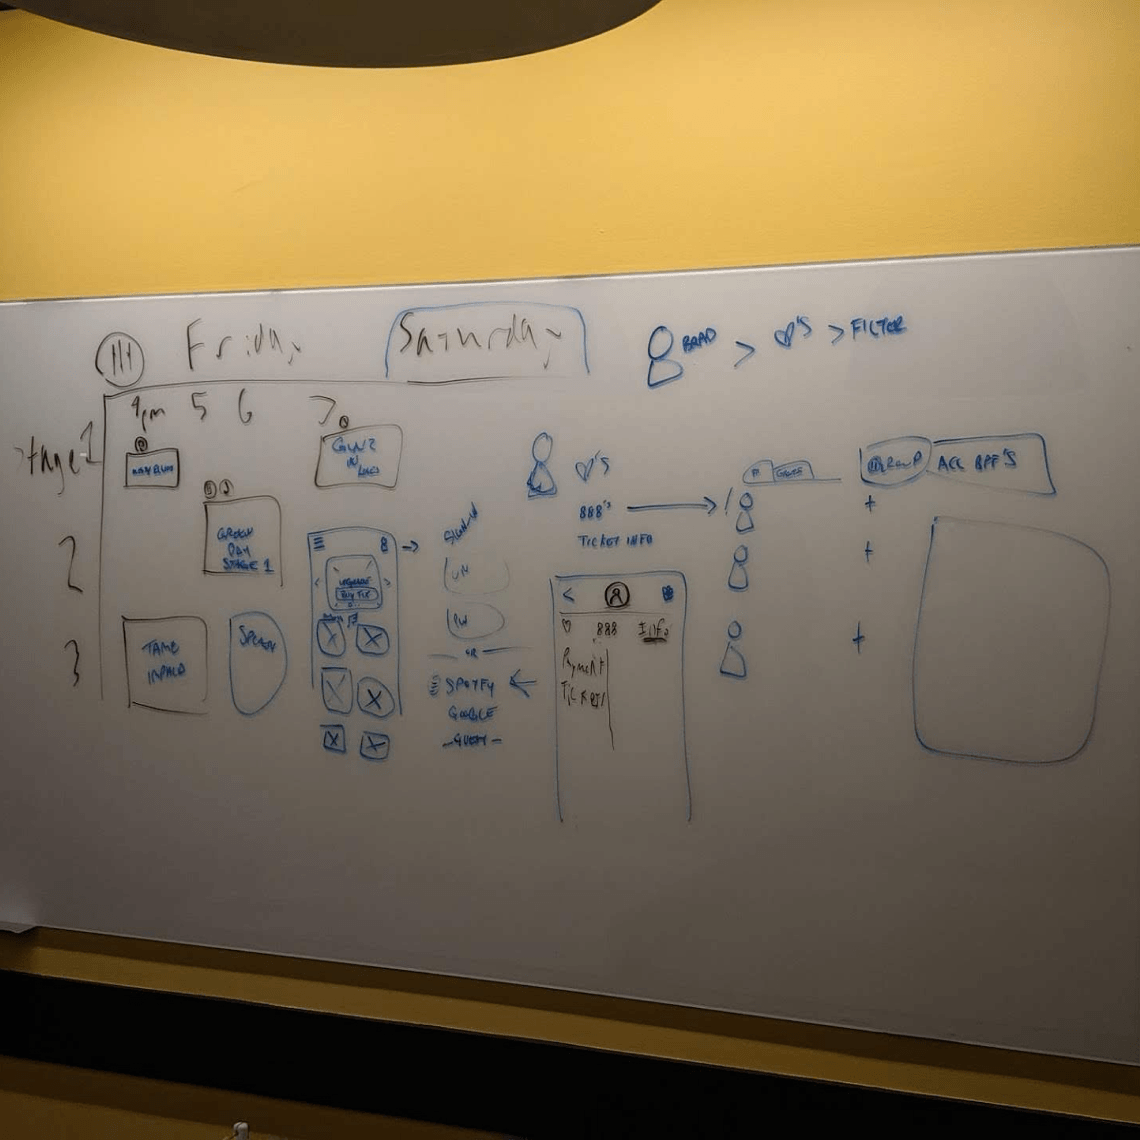 Friday
Saturday
BRAD > ♡'S > FILTER
4pm 5 6 7
Stage 1
GUNZ
N
ROSES
2
GREEN
DAY
STAGE 1
3
TAME
IMPALA
BUY TIX
SIGN-IN
UN
PW
OR
SPOTIFY
GOOGLE
♡'S
888's
TICKET INFO
<
♡ 888 Info
Payment
TICKETS
GROUP
ALL BFF'S
+
+
+